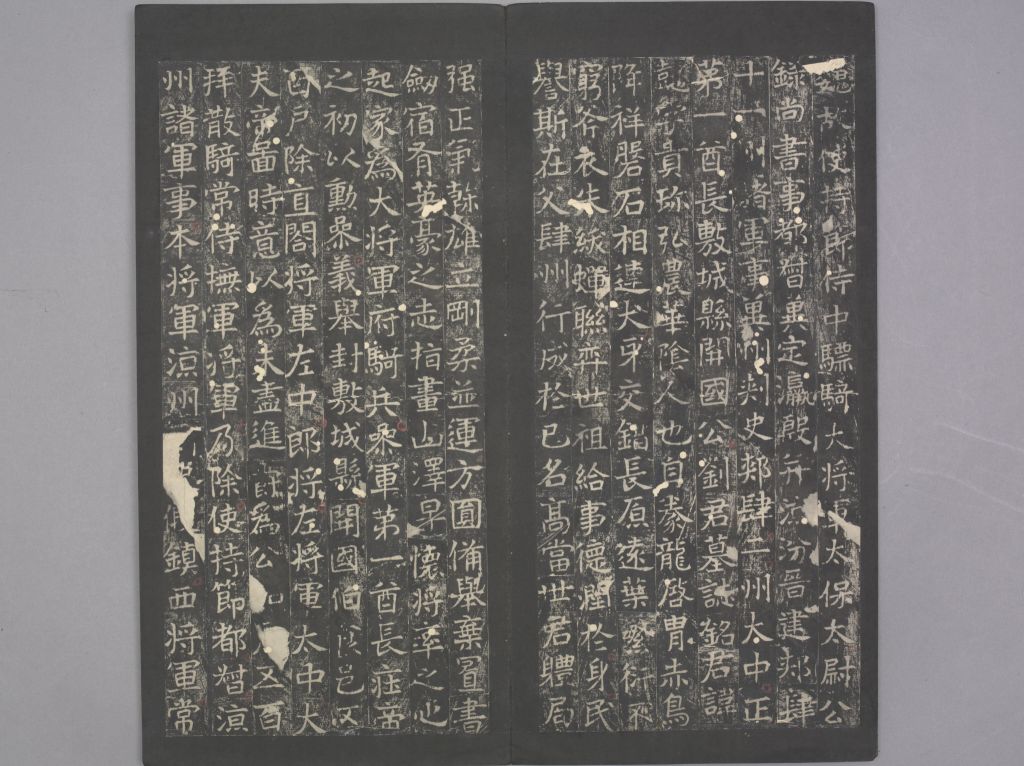 魏故使持節侍中驃騎大將軍太保太尉公
錄尚書事都督冀定瀛殷并涼汾晉建郟肆
十一州諸軍事冀州刾史郟肆二州大中正
第一酋長敷城縣開國公劉君墓誌銘君諱
懿字貴珍弘農華陰人也自豢龍啓胄赤烏
降祥磐石相連犬牙交錯長原遠葉繁衍不
窮斧衣朱紱蟬聯弈世祖給事德潤於身民
譽斯在父肆州行成於已名高當世君體局
强正爭幹雄立剛柔並運方圓俻舉棄置書
劒宿有英豪之志指畫山澤早懷將率之心
起家為大將軍府騎兵叅軍第一酋長莊帝
之初以勳叅義舉封敷城縣開國伯食邑五
百戶除直閤將軍左中郎將左將軍太中大
夫帝啚時意以為未盡進爵為公加五百
拜散騎常侍撫軍將軍乃除使持節都督涼
州諸軍事本將軍涼州假鎮西將軍常